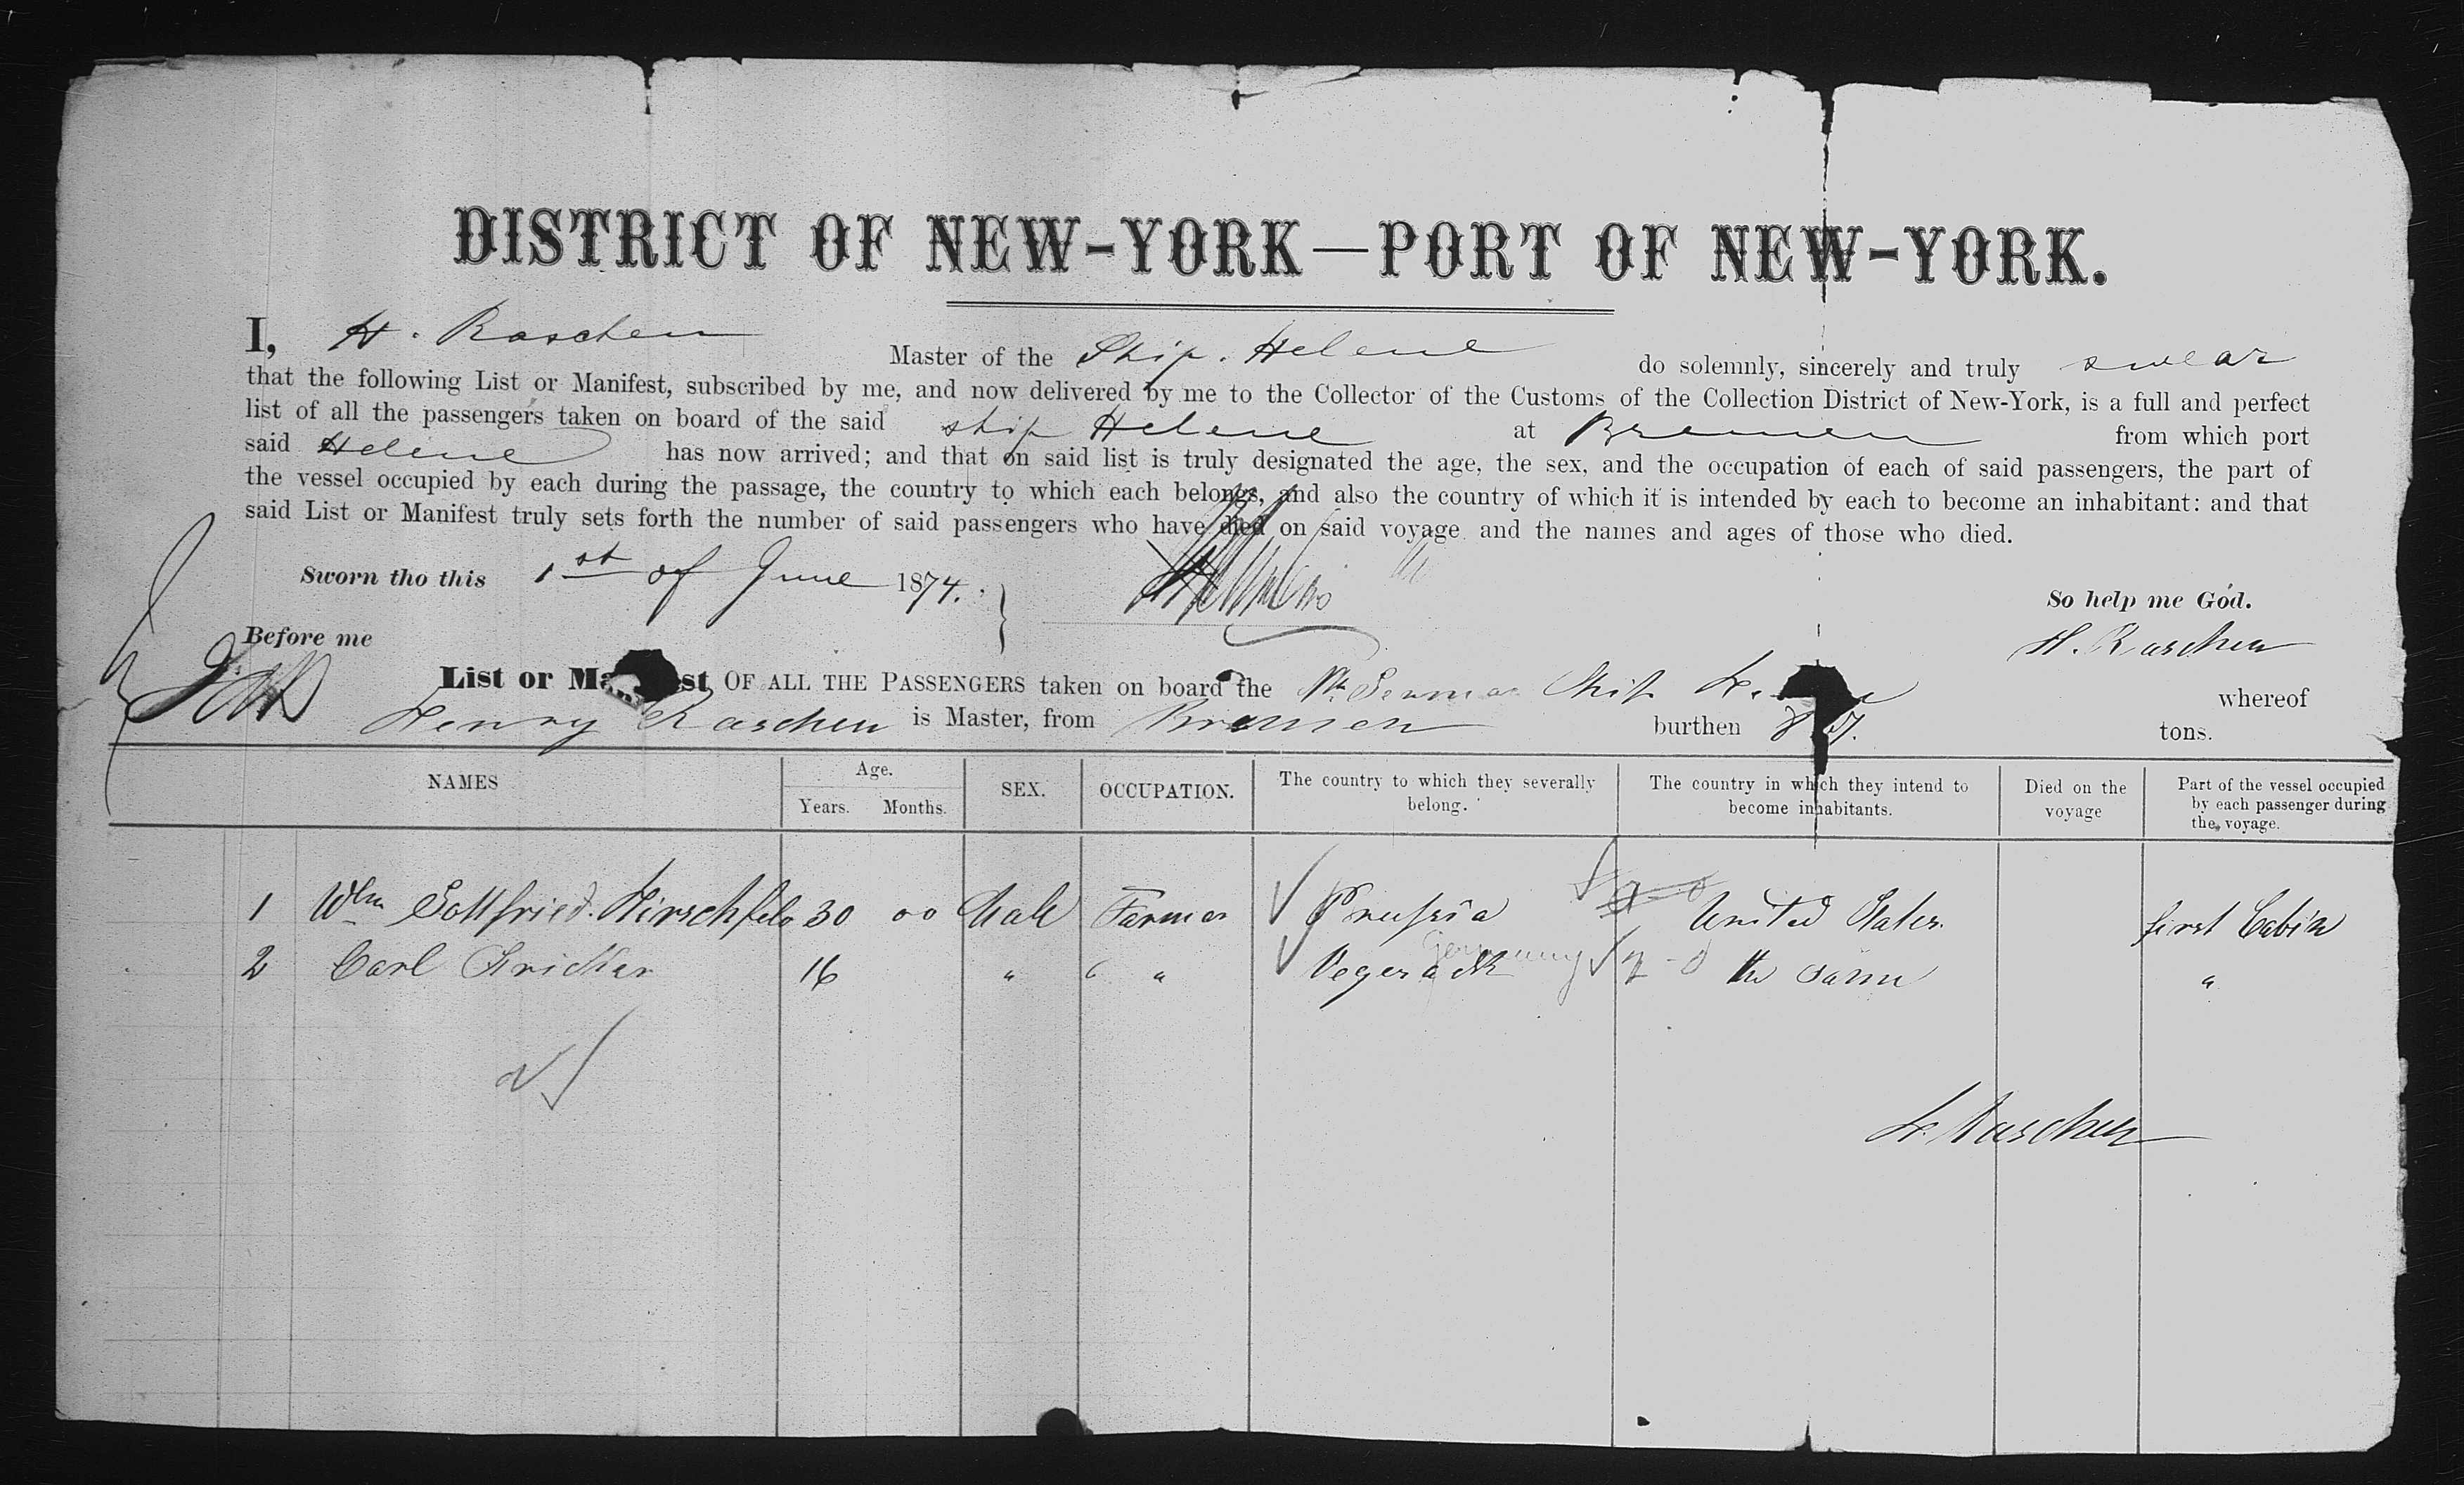 DISTRICT OF NEW-YORK—PORT OF NEW-YORK.
I, H. Raschen Master of the Ship. Helene do solemnly, sincerely and truly swear
that the following List or Manifest, subscribed by me, and now delivered by me to the Collector of the Customs of the Collection District of New-York, is a full and perfect
list of all the passengers taken on board of the said ship Helene at Bremen from which port
said Helene has now arrived; and that on said list is truly designated the age, the sex, and the occupation of each of said passengers, the part of
the vessel occupied by each during the passage, the country to which each belongs, and also the country of which it is intended by each to become an inhabitant: and that
said List or Manifest truly sets forth the number of said passengers who have died on said voyage and the names and ages of those who died.
Sworn tho this 1st of June 1874.
So help me God.
Before me
H. Raschen
List or Ma st OF ALL THE PASSENGERS taken on board the Nth German Ship whereof
Henry Raschen is Master, from Bremen burthen tons.
NAMES Age. Years. Months. SEX. OCCUPATION. The country to which they severally belong. The country in which they intend to become inhabitants. Died on the voyage Part of the vessel occupied by each passenger during the voyage.
1 Wlm Gottfried. Hirschfeld 30 00 Male Farmer Prussia United States. first Cabin
2 Carl 16 " " " Vegesack Germany the same "
H. Raschen